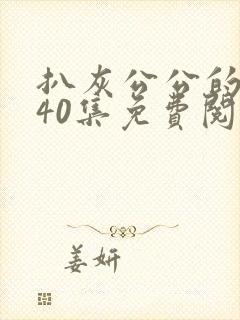 扒灰公公的
40集免费阅
姜妍